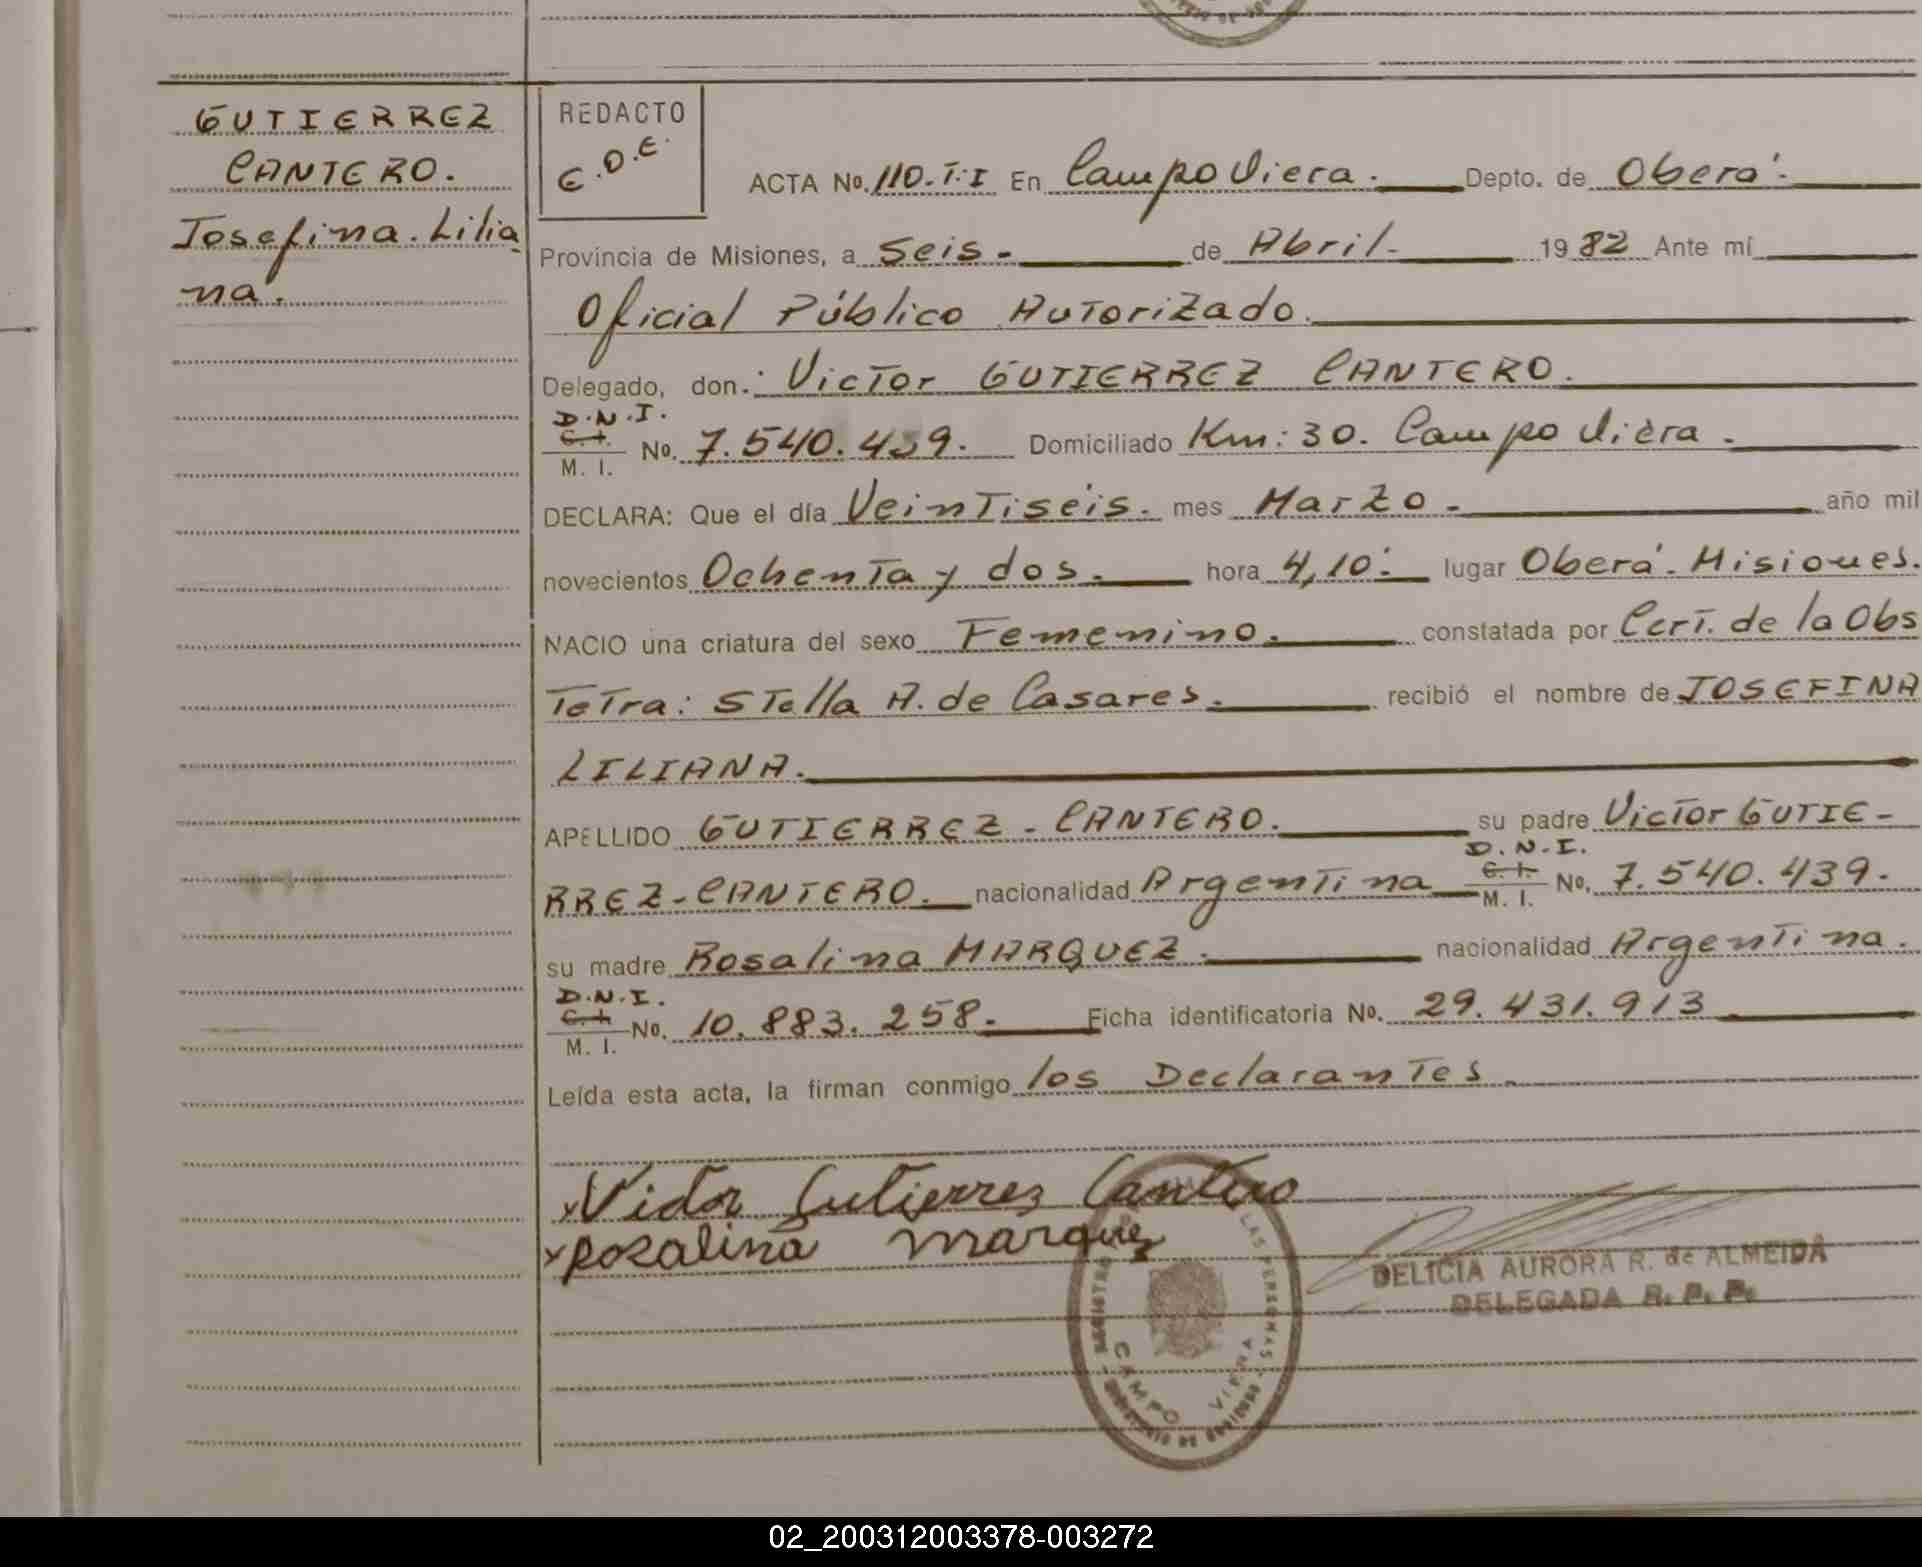 GUTIERREZ
CANTERO.
Josefina. Lilia
na.
REDACTO
E.O.E.
ACTA No. 110.T:I En Campo Viera. Depto. de Oberá.
Provincia de Misiones, a Seis. de Abril. 1982 Ante mí
Oficial Público Autorizado.
Delegado, don.: Victor GUTIERREZ CANTERO.
D.N.I.
C.I.
M. I. No. 7.540.439. Domiciliado Km: 30. Campo Viera.
DECLARA: Que el día Veintiseis. mes Marzo. año mil
novecientos Ochenta y dos. hora 4,10: lugar Oberá. Misiones.
NACIO una criatura del sexo Femenino. constatada por Cert. de la Obs
Tetra: Stella A. de Casares. recibió el nombre de JOSEFINA
LILIANA.
APELLIDO GUTIERREZ - CANTERO. su padre Victor GUTIE-
RREZ-CANTERO. nacionalidad Argentina D.N.I. C.I. M. I. No. 7.540.439.
su madre Rosalina MARQUEZ. nacionalidad Argentina.
D.N.I.
C.I.
M. I. No. 10.883.258. Ficha identificatoria No. 29.431.913
Leída esta acta, la firman conmigo los Declarantes
x Victor Gutierrez Cantero
x Rozalina marquez
REGISTRO LAS PERSONAS
CAMPO VIERA
DELICIA AURORA R. de ALMEIDA
DELEGADA R. P. P.
02_200312003378-003272